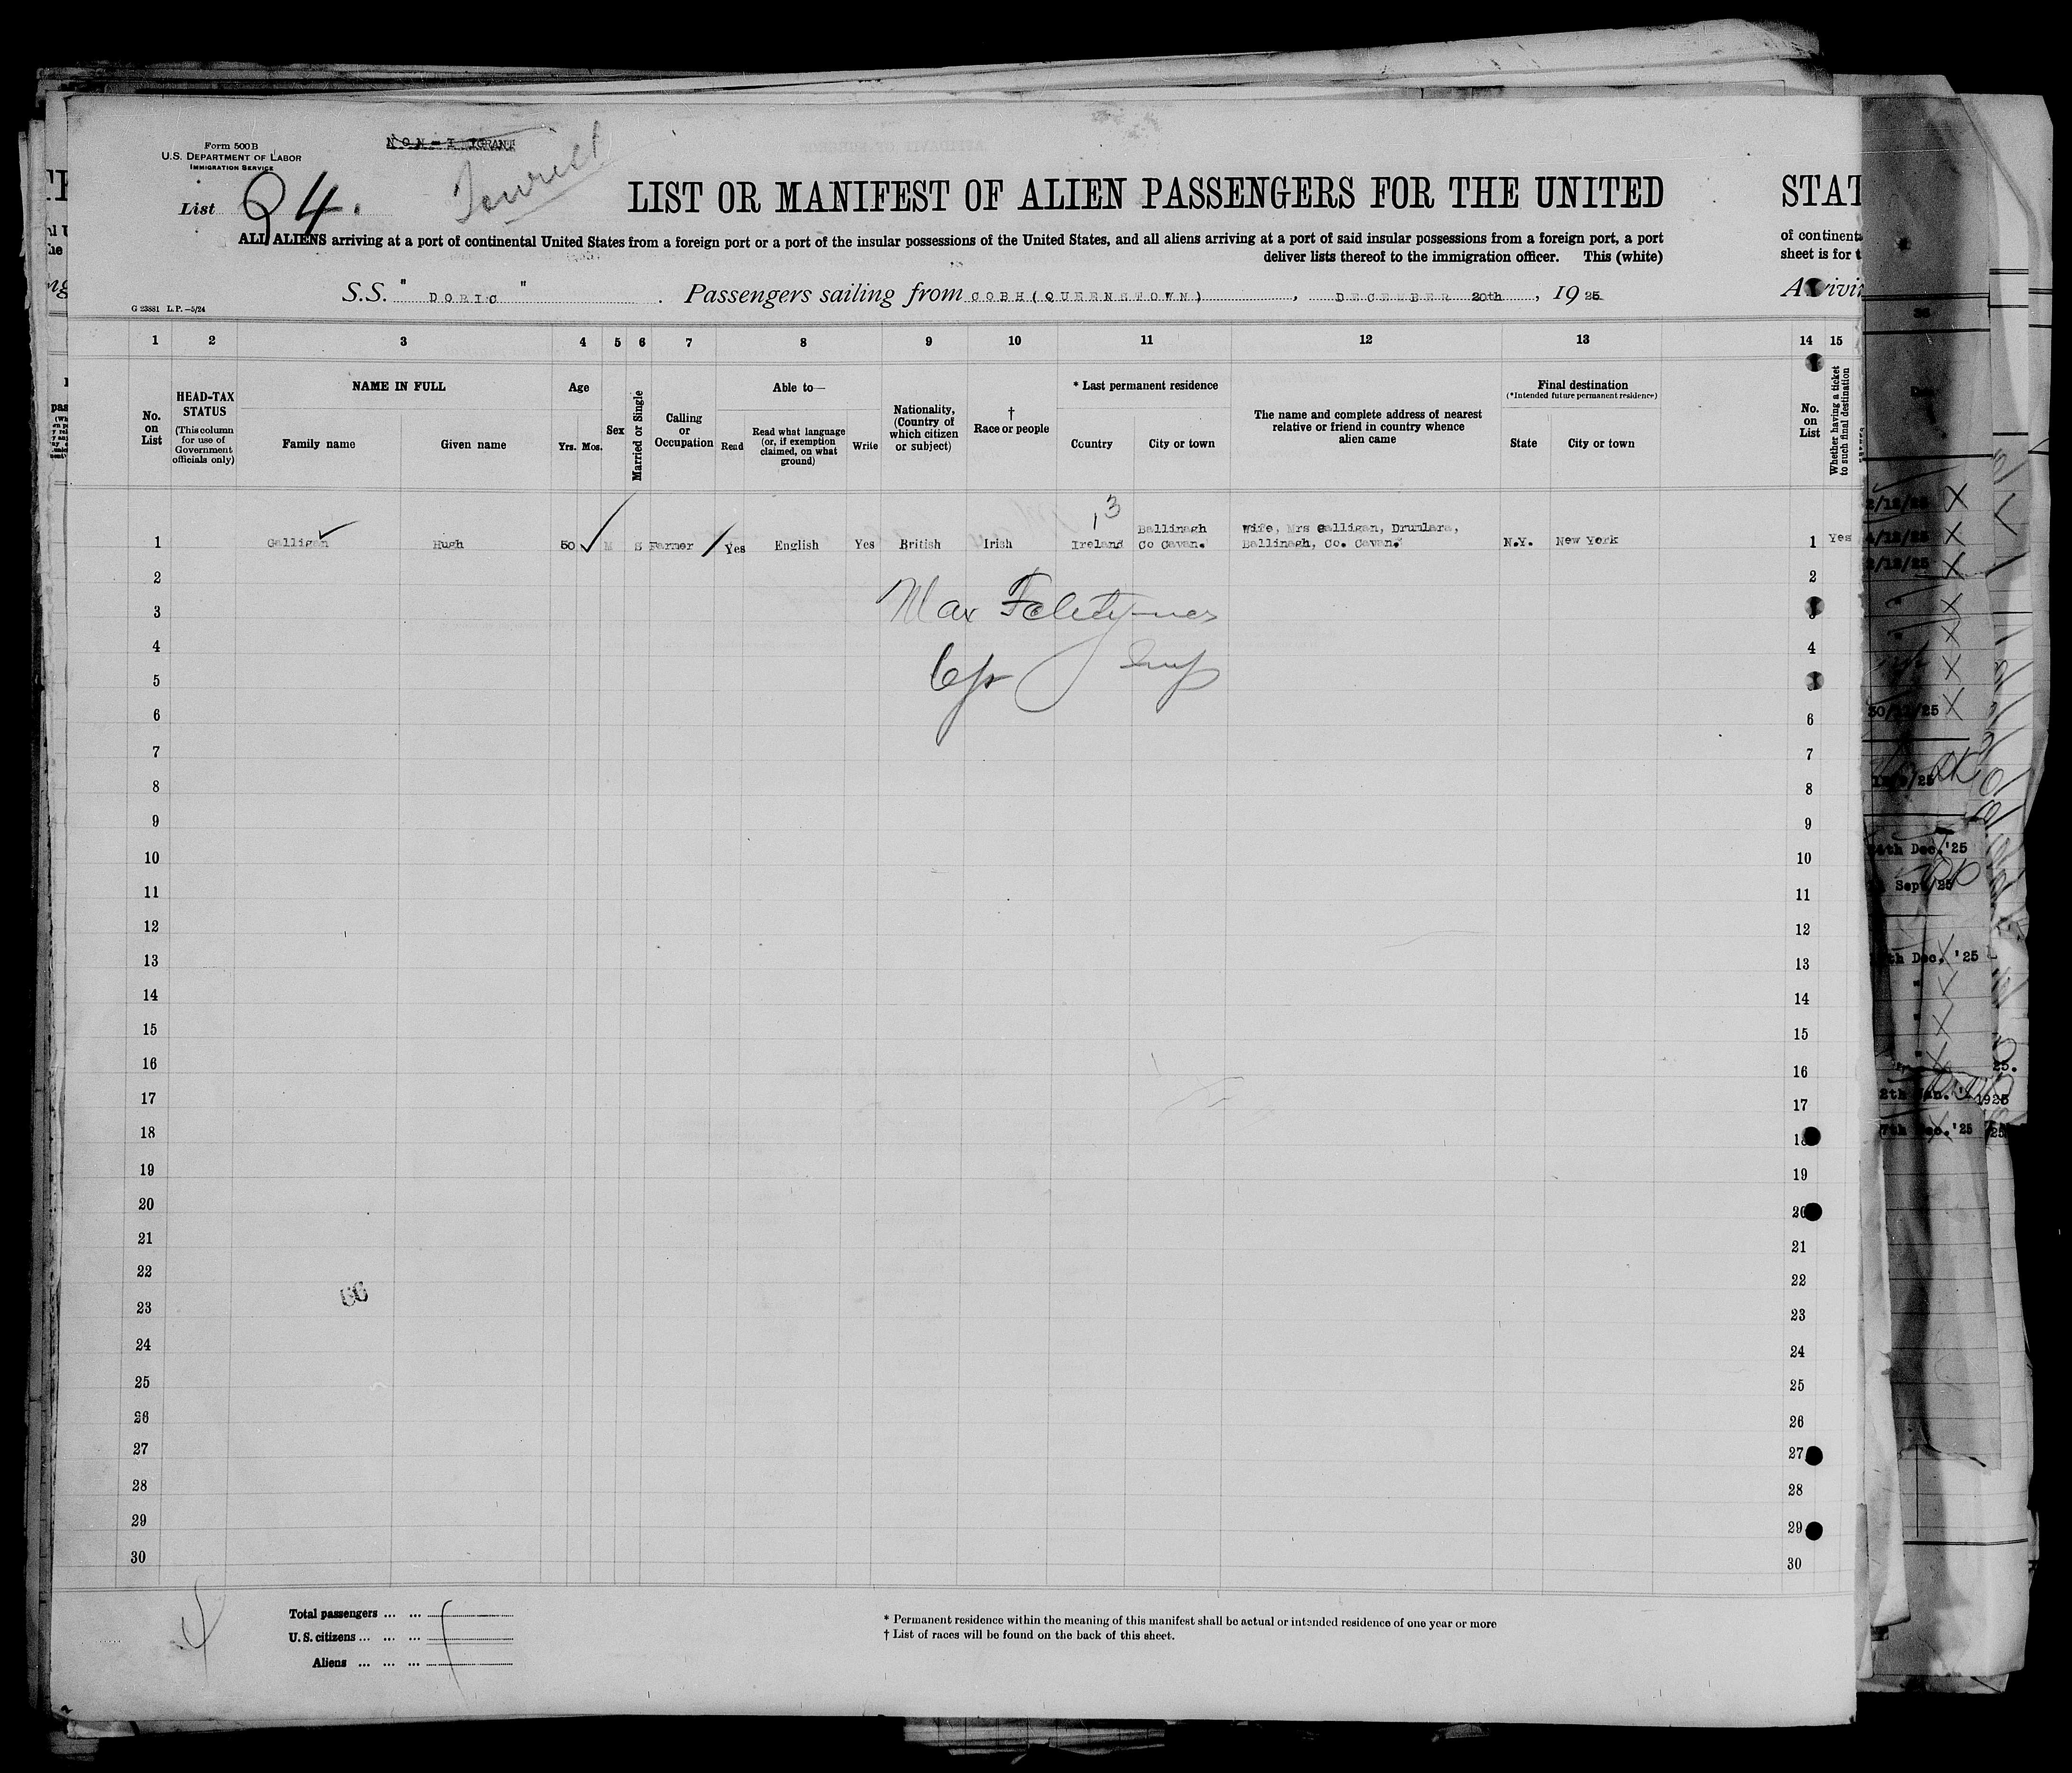 Form 500B
U.S. DEPARTMENT OF LABOR
IMMIGRATION SERVICE
NON-I IGRANT
Tourist
List 24.
LIST OR MANIFEST OF ALIEN PASSENGERS FOR THE UNITED
STAT
ALL ALIENS arriving at a port of continental United States from a foreign port or a port of the insular possessions of the United States, and all aliens arriving at a port of said insular possessions from a foreign port, a port
of continent
deliver lists thereof to the immigration officer. This (white)
sheet is for t
S.S. " DORIC " . Passengers sailing from COBH(QUEENSTOWN) , DECEMBER 20th , 19 25
Arrivin
G 23881 L.P.—5/24
1 2 3 4 5 6 7 8 9 10 11 12 13 14 15
No. on List
HEAD-TAX STATUS
(This column for use of Government officials only)
NAME IN FULL
Family name Given name
Age
Yrs. Mos.
Sex
Married or Single
Calling or Occupation
Able to—
Read
Read what language (or, if exemption claimed, on what ground)
Write
Nationality, (Country of which citizen or subject)
† Race or people
* Last permanent residence
Country City or town
The name and complete address of nearest relative or friend in country whence alien came
Final destination
(*Intended future permanent residence)
State City or town
No. on List
Whether having a ticket to such final destination
13
Ballinagh Wife, Mrs Galligan, Drumlara,
1 Galligan Hugh 50 M S Farmer Yes English Yes British Irish Ireland Co Cavan. Ballinagh, Co. Cavan. N.Y. New York 1 Yes
2 2
3 Max 3
4 4
5 Insp 5
6 6
7 7
8 8
9 9
10 10
11 11
12 12
13 13
14 14
15 15
16 16
17 17
18 18
19 19
20 20
21 21
22 22
66
23 23
24 24
25 25
26 26
27 27
28 28
29 29
30 30
Total passengers ... ...
U.S. citizens ... ... ...
Aliens ... ... ...
* Permanent residence within the meaning of this manifest shall be actual or intended residence of one year or more
† List of races will be found on the back of this sheet.
2/12/25 X
4/12/25 X
2/12/25 X
30/11/25 X
24th Dec.'25
Sept/25
th Dec. '25
25.
2th Jan.' 1925
7th Dec.'25